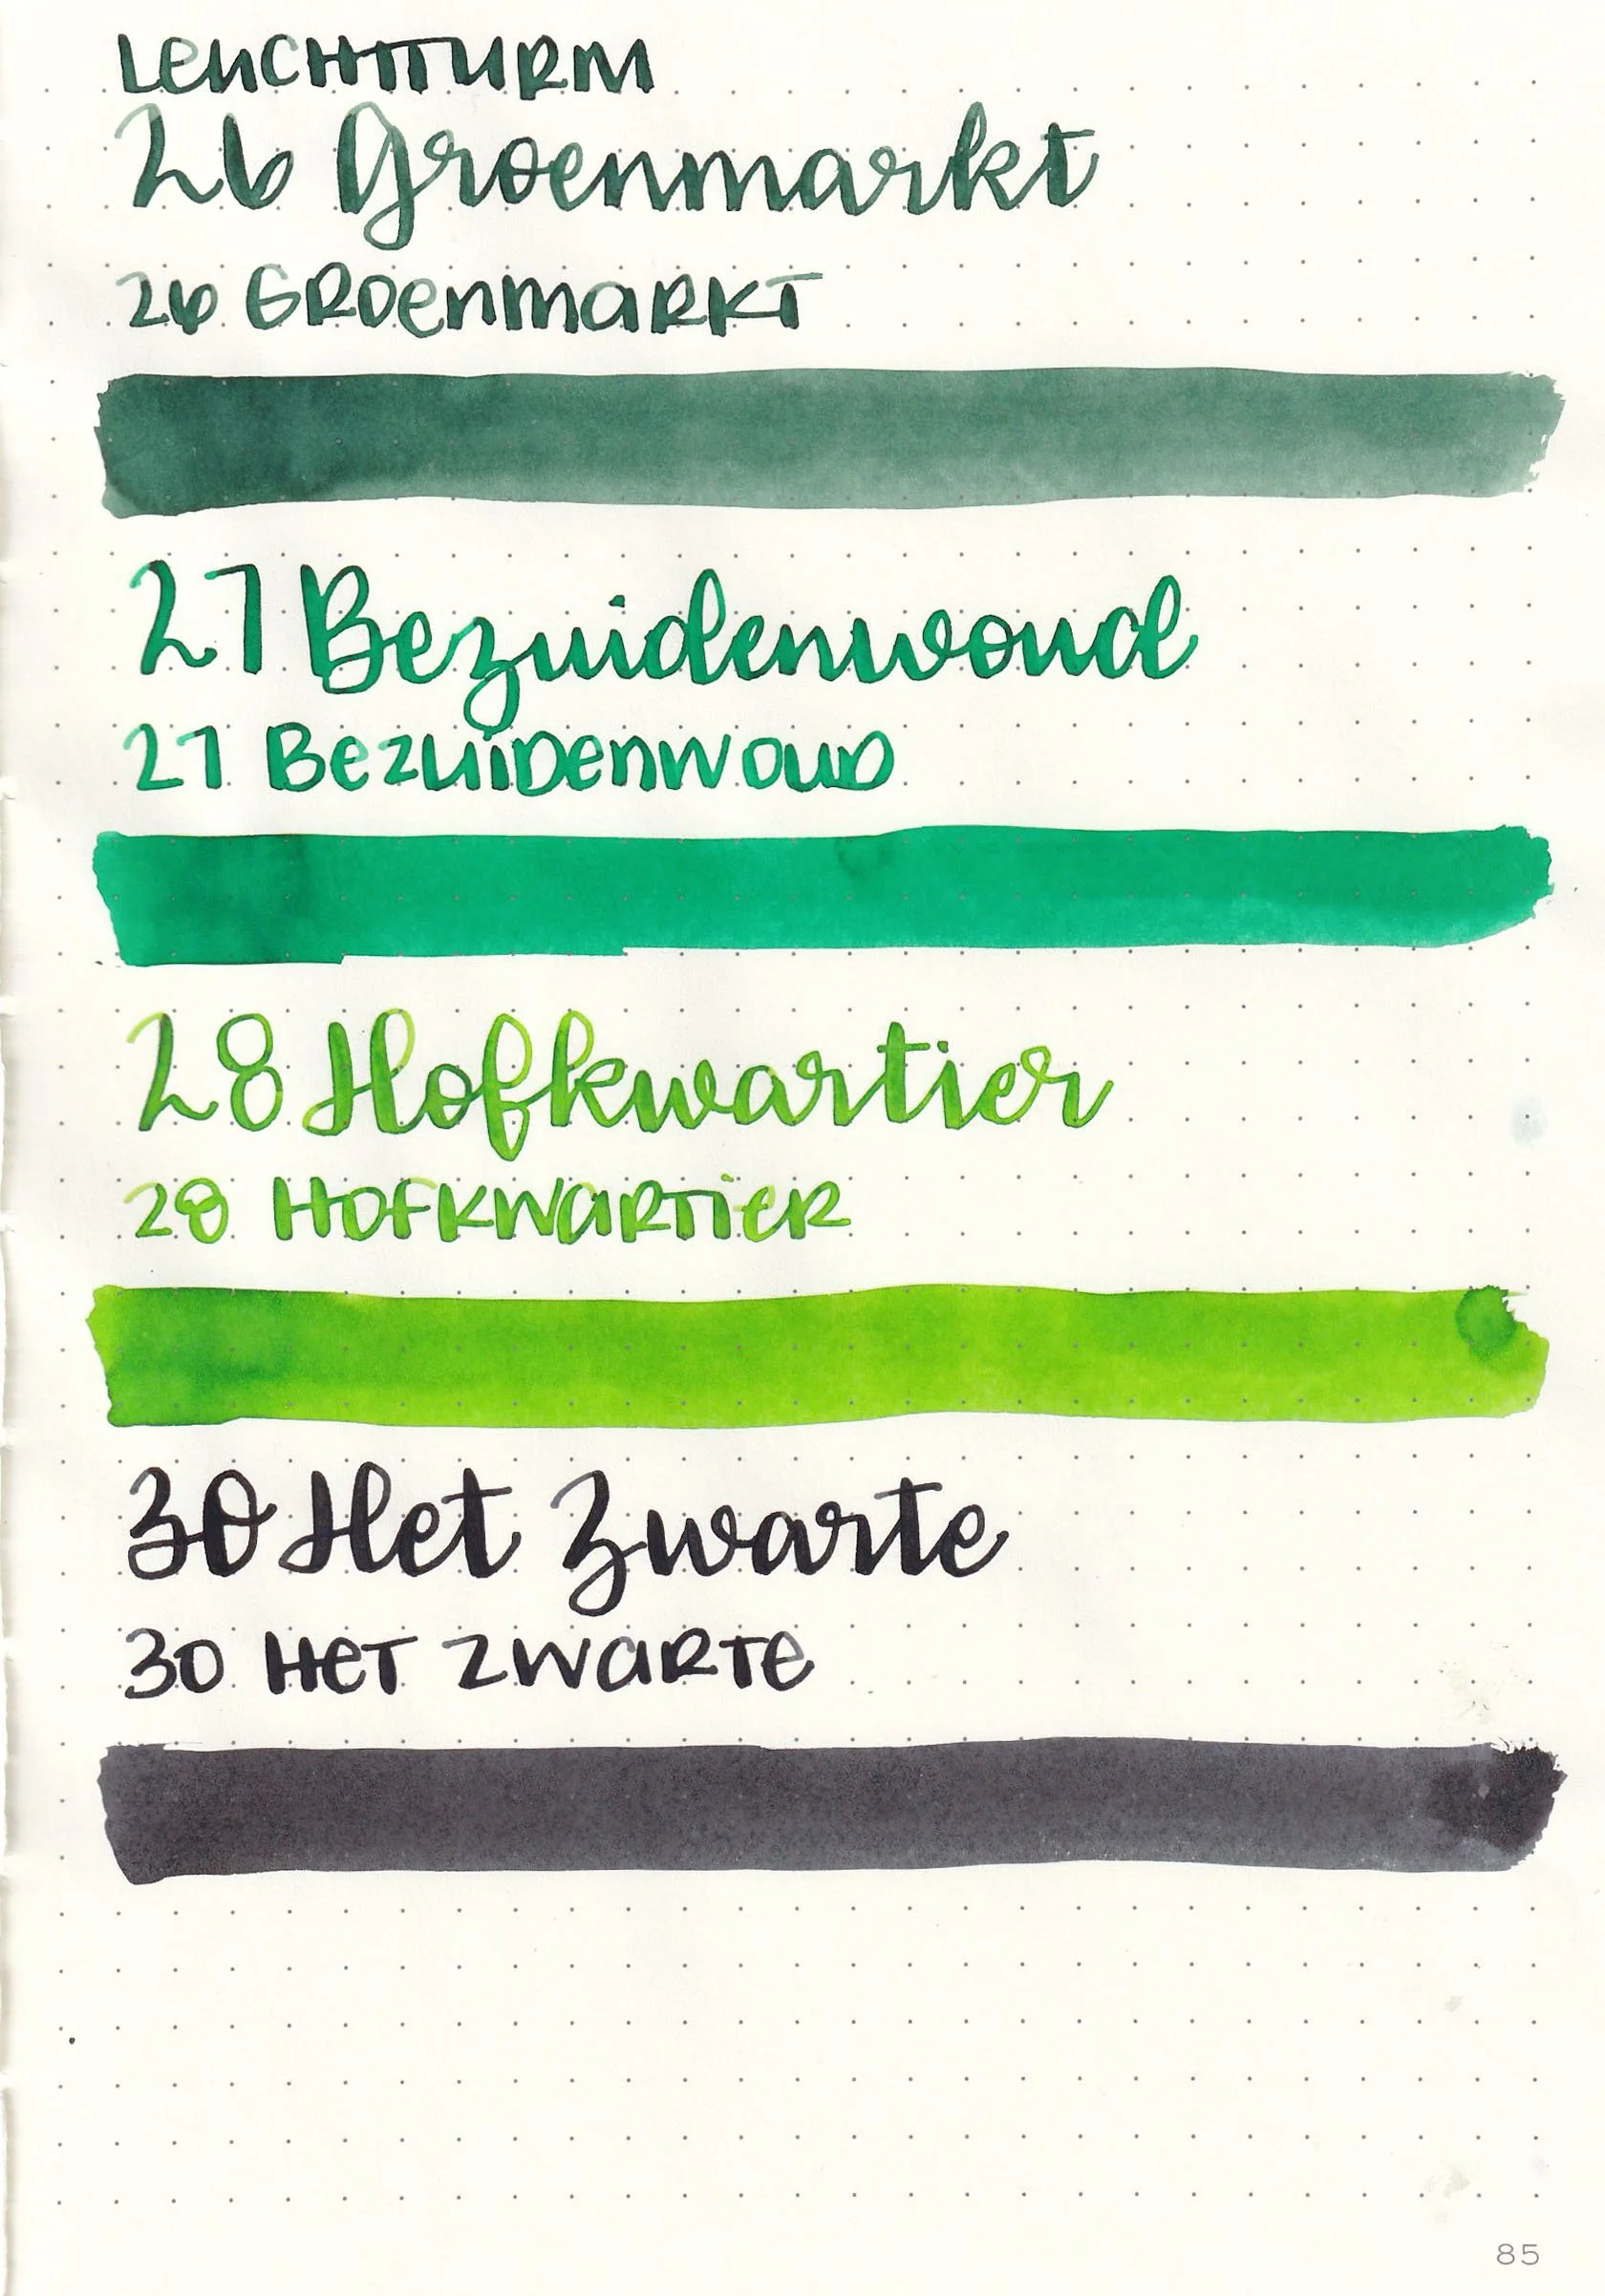 LeuchTTuRm
26 Groenmarkt
26 GROenmaRKT
27 Bezuidenwoud
27 BezuiDenWouD
28 Hofkwartier
28 HOFKWaRTieR
30 Het Zwarte
30 HeT ZWaRTe
85